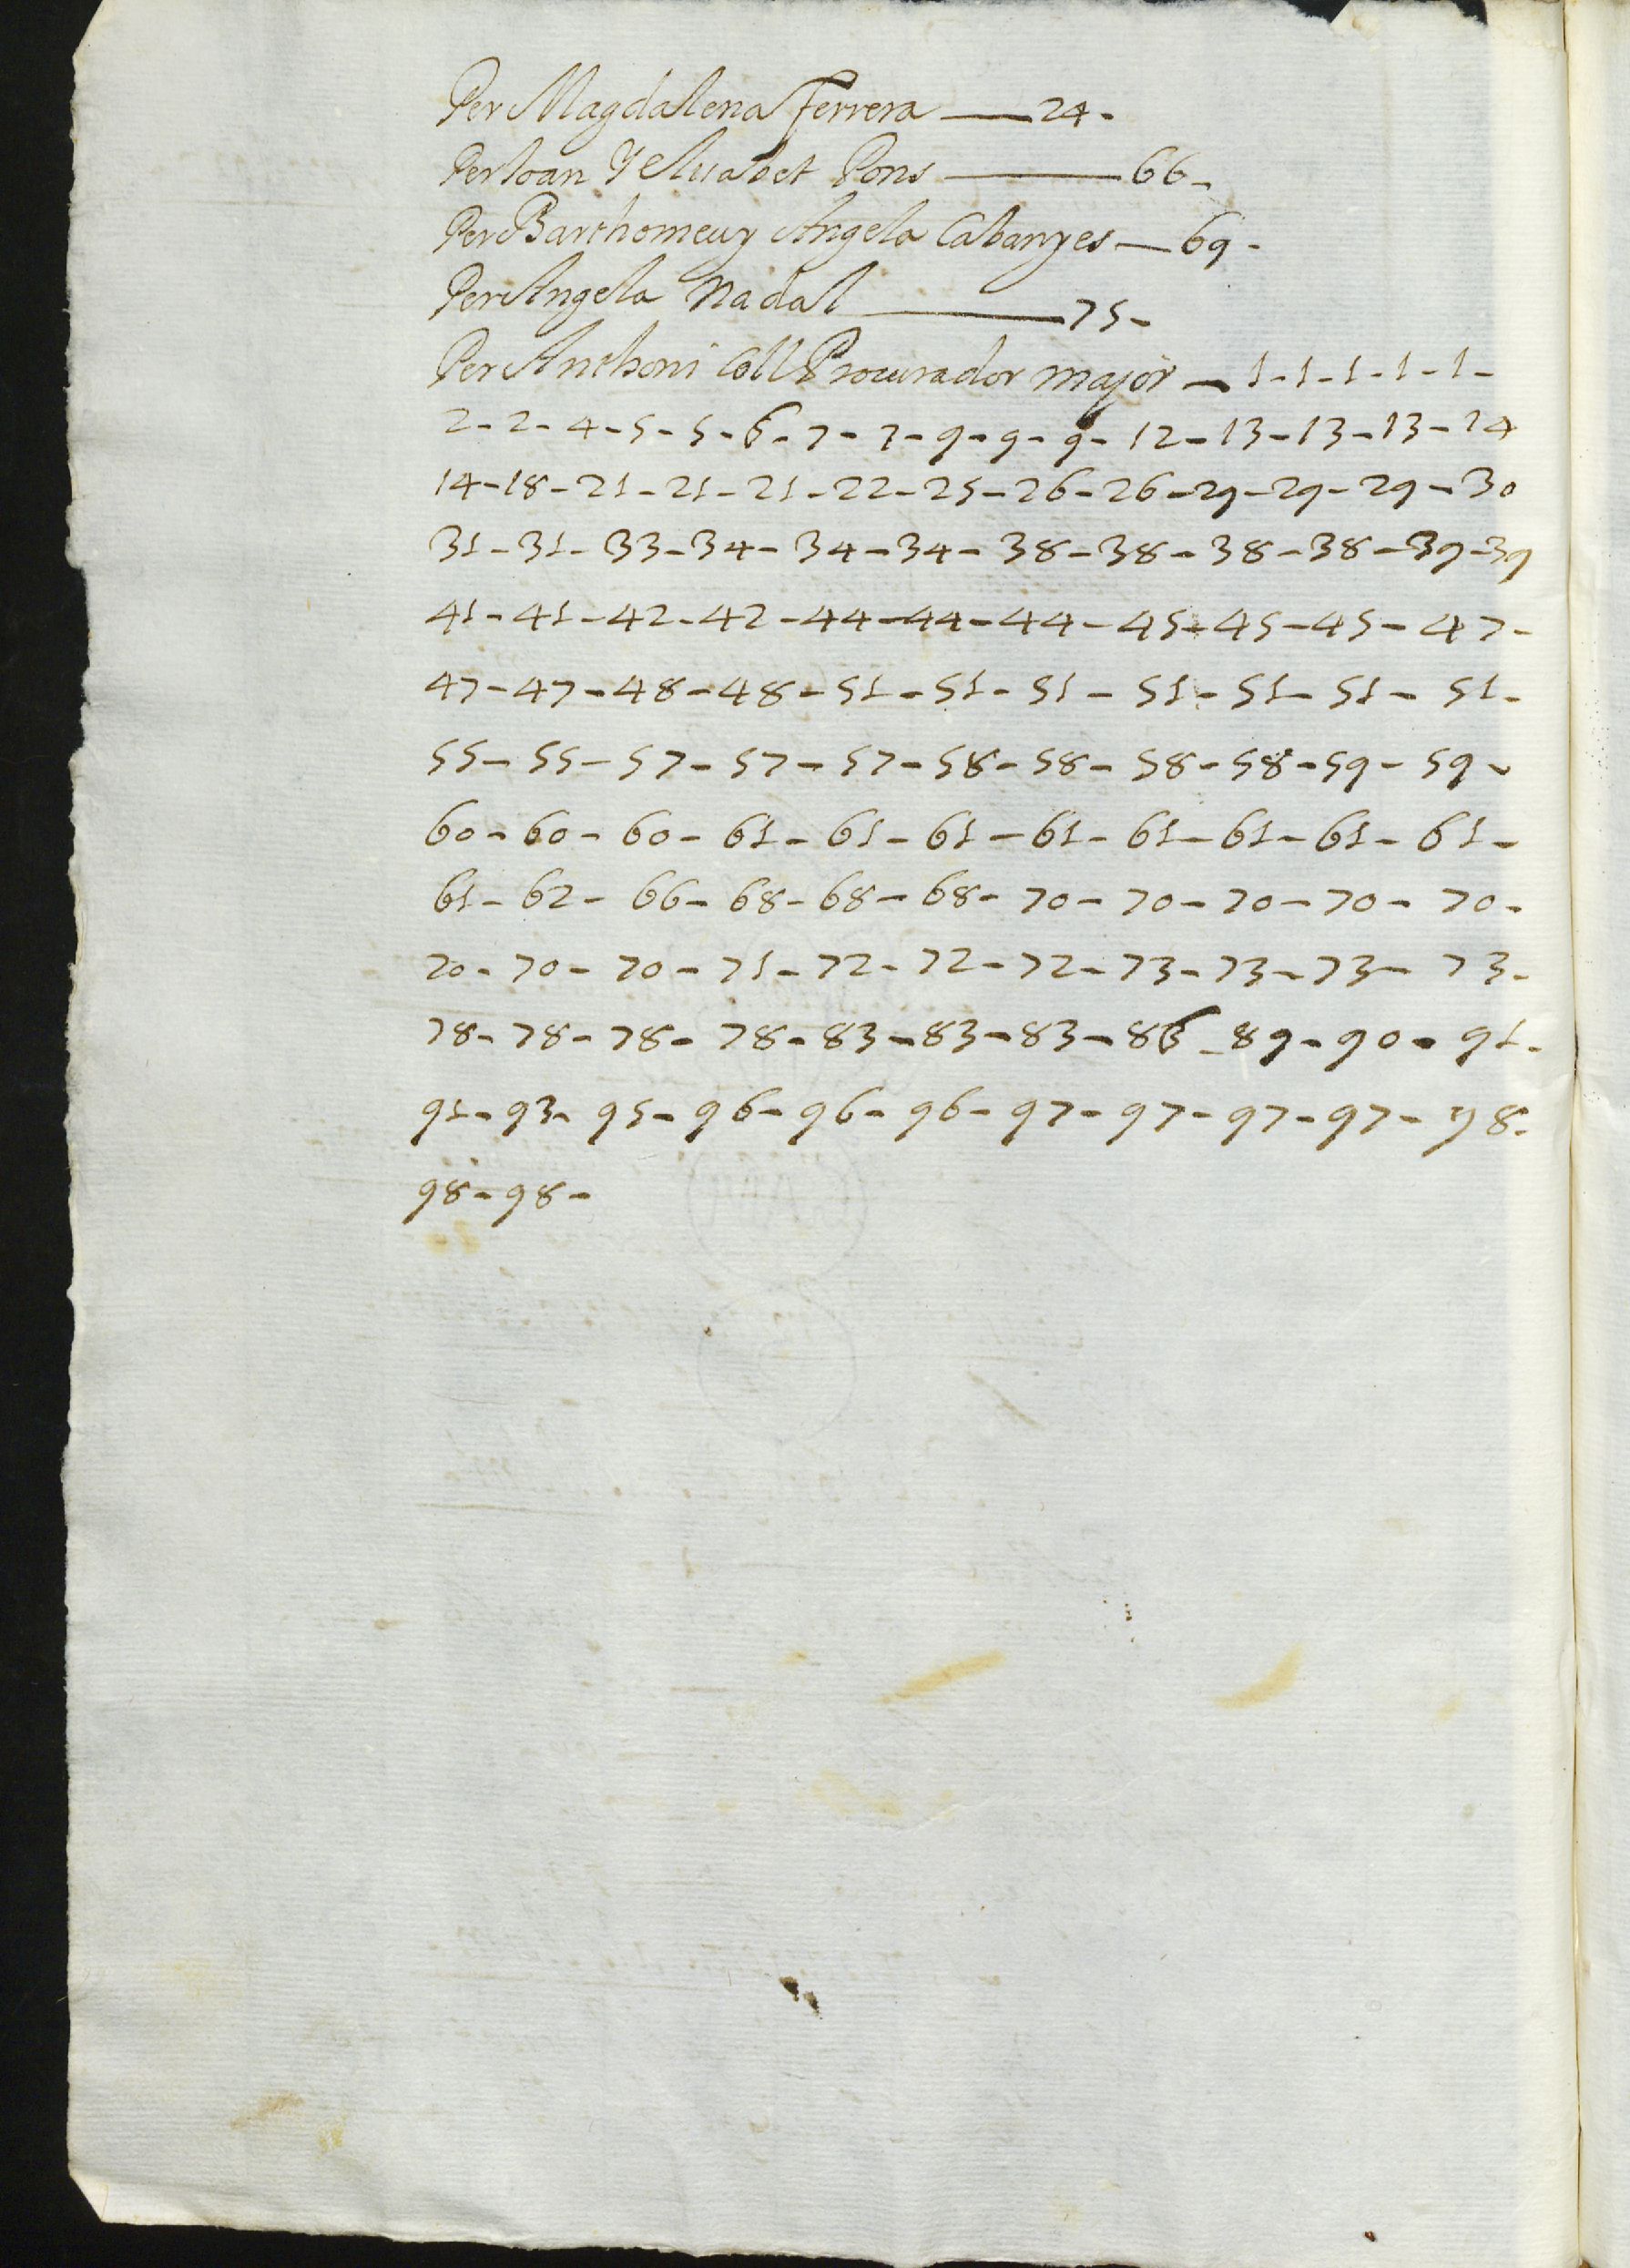 Per Magdalena Ferrera — 24 -
Per Joan y Elisabet Pons — 66 -
Per Barthomeu y Angela Cabanyes — 69 -
Per Angela Nadal — 75 -
Per Anthoni Coll Procurador major - 1 - 1 - 1 - 1 - 1 -
2 - 2 - 4 - 5 - 5 - 6 - 7 - 7 - 9 - 9 - 9 - 12 - 13 - 13 - 13 - 14
14 - 18 - 21 - 21 - 21 - 22 - 25 - 26 - 26 - 29 - 29 - 29 - 30
31 - 31 - 33 - 34 - 34 - 34 - 38 - 38 - 38 - 38 - 39 - 39
41 - 41 - 42 - 42 - 44 - 44 - 44 - 45 - 45 - 45 - 47 -
47 - 47 - 48 - 48 - 51 - 51 - 51 - 51 - 51 - 51 - 51 -
55 - 55 - 57 - 57 - 57 - 58 - 58 - 58 - 58 - 59 - 59 -
60 - 60 - 60 - 61 - 61 - 61 - 61 - 61 - 61 - 61 - 61 -
61 - 62 - 66 - 68 - 68 - 68 - 70 - 70 - 70 - 70 - 70 -
70 - 70 - 70 - 71 - 72 - 72 - 72 - 73 - 73 - 73 - 73 -
78 - 78 - 78 - 78 - 83 - 83 - 83 - 86 - 89 - 90 - 91 -
91 - 93 - 95 - 96 - 96 - 96 - 97 - 97 - 97 - 97 - 98 -
98 - 98 -